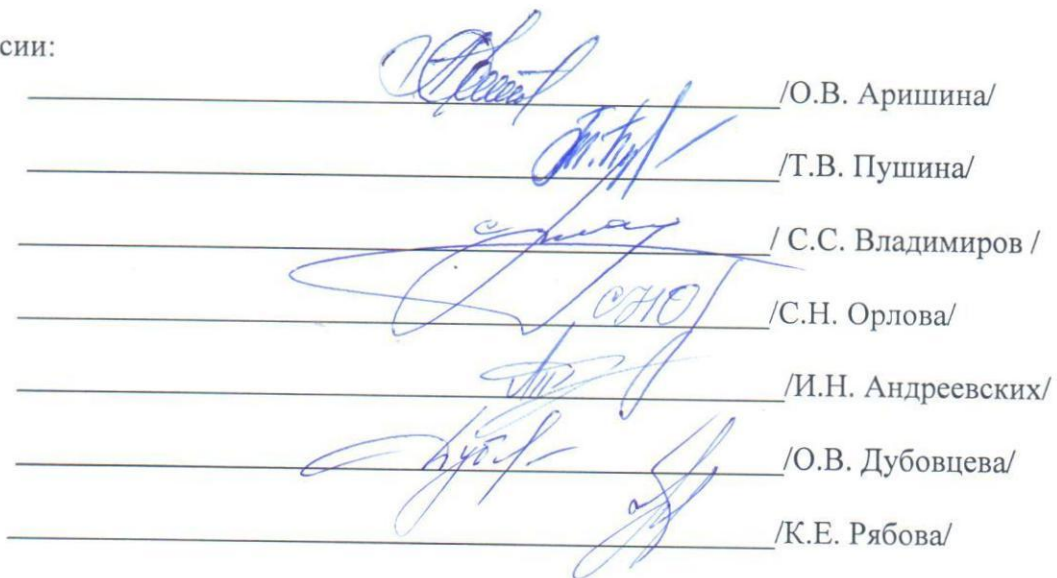 сии:
/О.В. Аришина/
/Т.В. Пушина/
/ С.С. Владимиров /
/С.Н. Орлова/
/И.Н. Андреевских/
/О.В. Дубовцева/
/К.Е. Рябова/